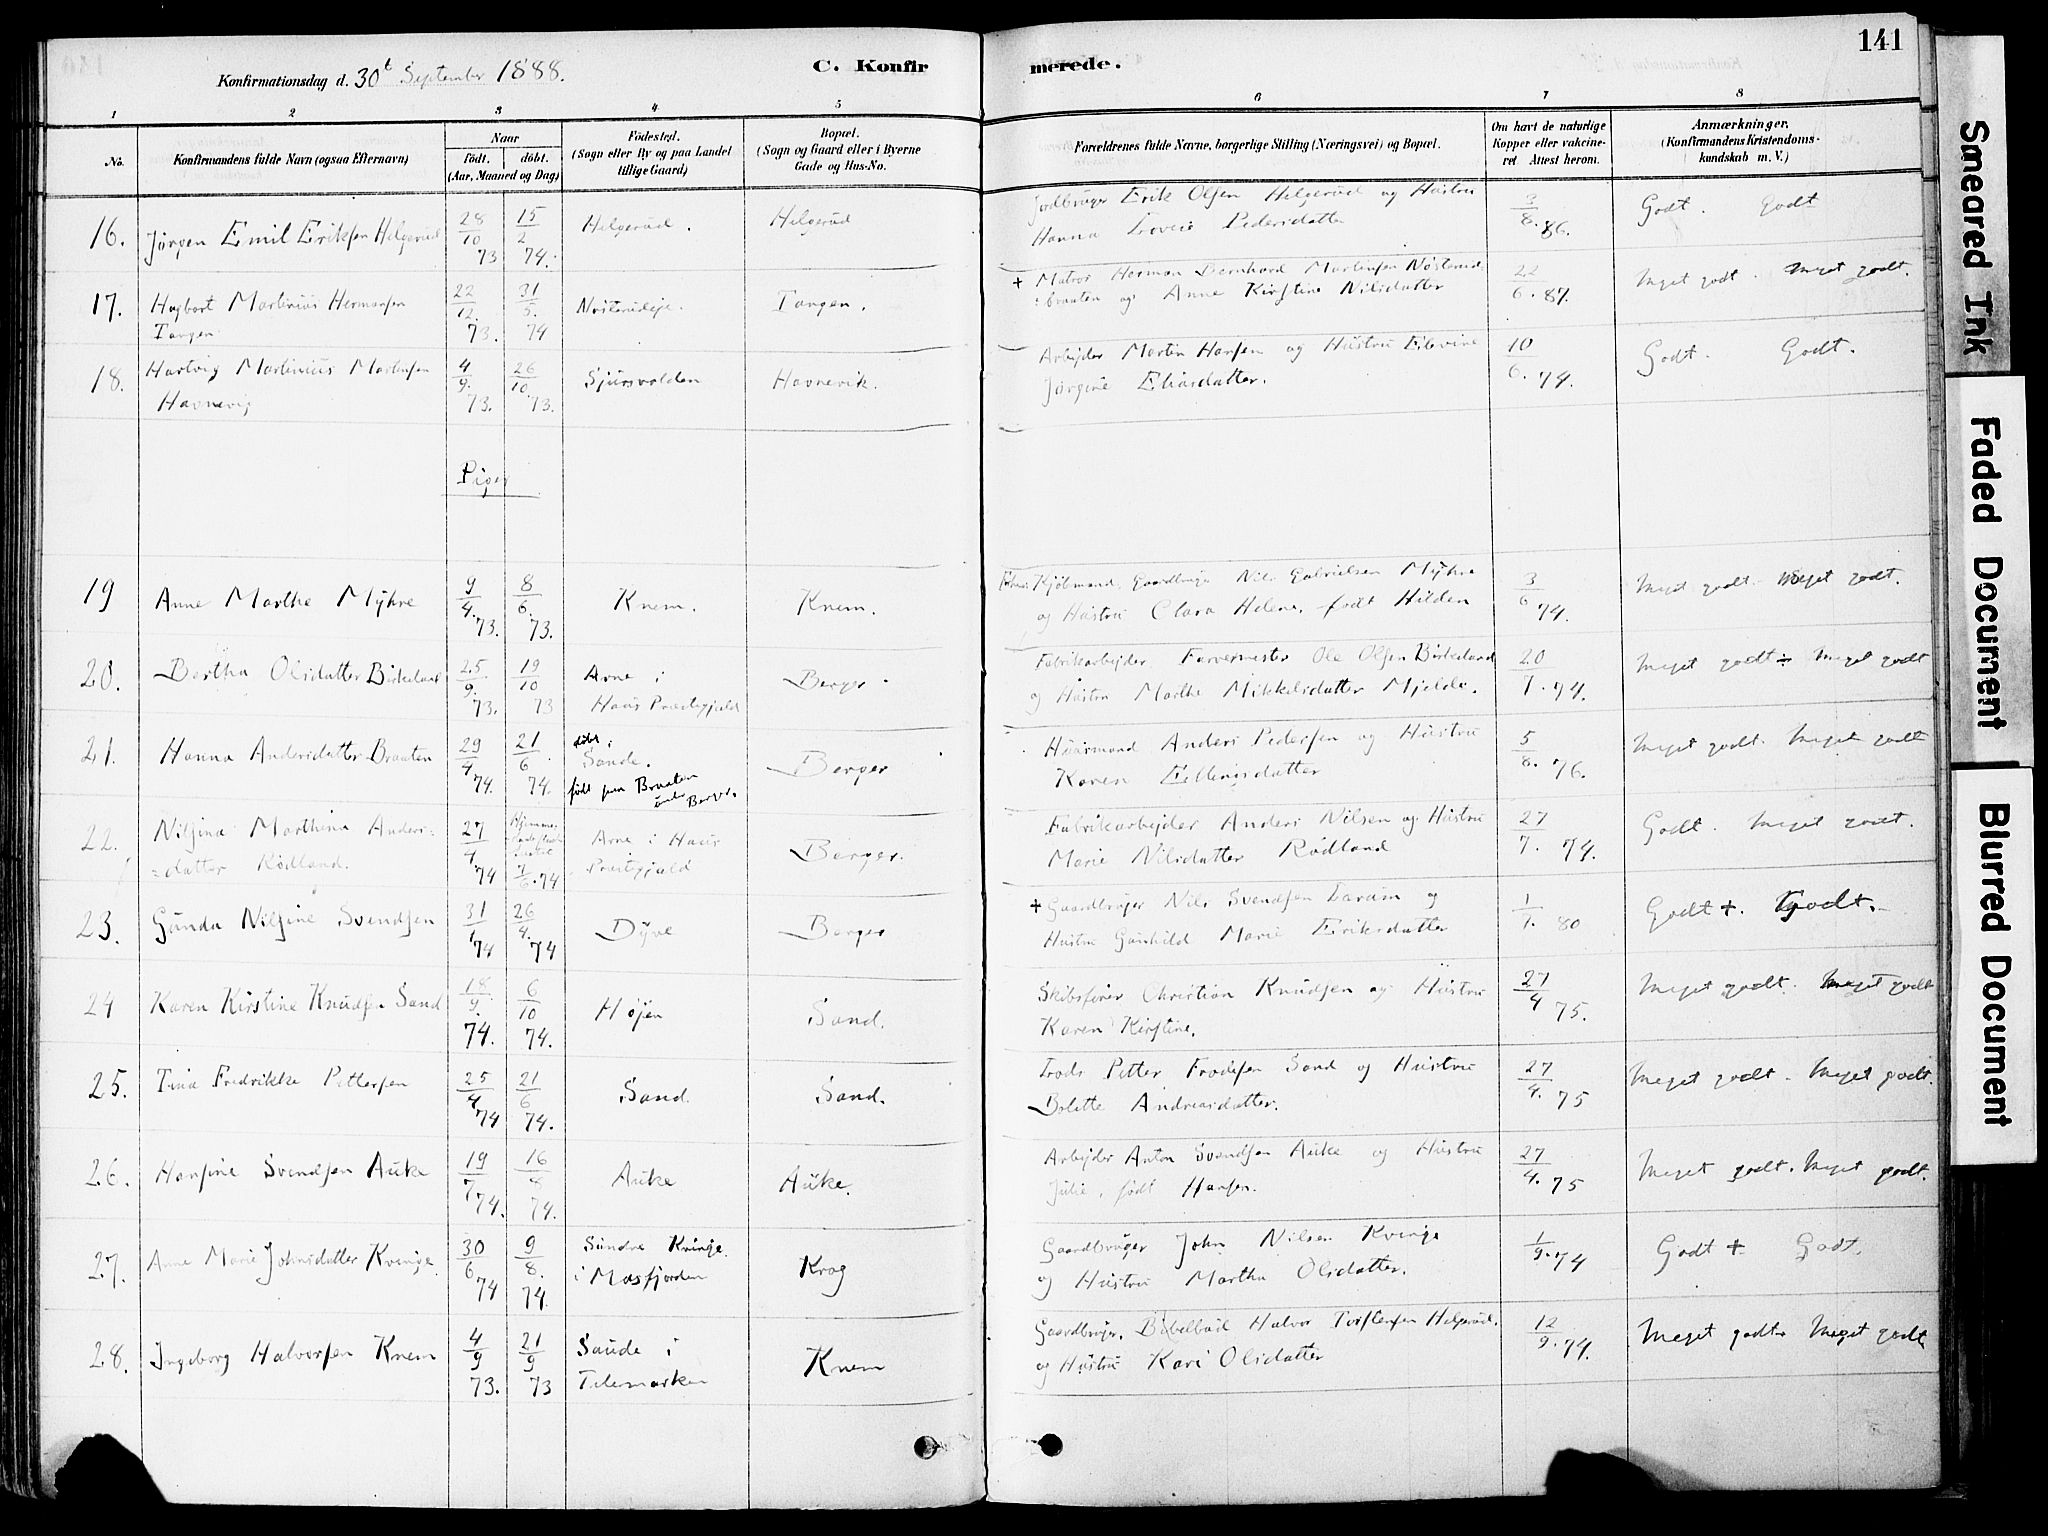 141
Konfirmationsdag d. 30t September 1888. C. Konfirmerede.
1 2 3 4 5 6 7 8
No. Konfirmandens fulde Navn (ogsaa Efternavn) Naar født. døbt. (Aar, Maaned og Dag) Fødested. (Sogn eller By og paa Landet tillige Gaard) Bopæl. (Sogn og Gaard eller i Byerne Gade og Hus-No. Forældrenes fulde Navne, borgerlige Stilling (Næringsvei) og Bopæl. Om havt de naturlige Kopper eller vakcineret Attest herom. Anmærkninger. (Konfirmandens Kristendomskundskab m. V.)
16. Jørgen Emil Eriksen Helgerud 28/10 73 15/2 74. Helgerud. Helgerud Jordbruger Erik Olsen Helgerud og Hustru 3/8. 86. Godt. Godt
Hanna Lovise Pedersdatter
17. Hagbart Martinius Hermansen 22/12. 73. 31/5. 74 Tangen. + Matros Herman Bernhard Martinsen 22/6. 87. Meget godt. Meget godt.
Tangen braaten og Anne Kirstine Nilsdatter
18. Hartvig Martinius Martinsen 4/9. 73. 26/10. 73. Sjursvolden Havnevik. Arbejder Martin Hansen og Hustru 10/6. 74. Godt. Godt.
Havnevig Jørgine Eliasdatter.
Piger
19 Anne Marthe Myhre 9/4. 73. 8/6. 73. Knem. Knem. Kjøbmand, Gaardbruger Nils Gabrielsen Myhre 3/6 74. Meget godt. Meget godt.
og Hustru Clara Helene, født Hilden
20. Bertha Olsdatter Birkeland 25/9. 73. 19/10 73 Arne i Berger. Fabrikarbejder Farvermester Ole Olsen Birkeland 20/7. 74. Meget godt Meget godt
Haus Præstegjeld og Hustru Marthe Mikkelsdatter Mjelde.
21. Hanna Andersdatter Braaten 29/4 74. 21/6 74. døbt i Sande. Berger Huusmand Anders Pedersen og Hustru 5/8. 76. Meget godt. Meget godt
født paa Braaten under Berger. Karen Ellingsdatter
22. Nilsina Marthina Anders= 27/4 74 7/6. 74 Arne i Haus Berger. Fabrikarbejder Anders Nilsen og Hustru 27/7. 74. Godt. Meget godt.
=datter Rødland. Præstegjeld Marie Nilsdatter Rødland
23. Gunda Nilsine Svendsen 31/1 74 26/4. 74 Dyve Berger + Gaardbruger Nils Svendsen og 1/7. 80 Godt +. Godt.
Hustru Gunhild Marie Eriksdatter
24 Karen Kirstine Knudsen Sand 18/9. 74. 6/10 74. Højen Sand. Skibsfører Christian Knudsen og Hustru 27/4 75. Meget godt. Meget godt
Karen Kirstine.
25. Tina Fredrikke Pettersen 25/4 74 21/6 74. Sand. Sand. Lods Petter Frodesen Sand og Hustru 27/4. 75 Meget godt. Meget godt.
Bolette Andreasdatter.
26. Hansine Svendsen Auke 19/7 74. 16/8 74. Auke Auke. Arbejder Anton Svendsen Auke og Hustru 27/4. 75 Meget godt. Meget godt.
Julie, født Hansen.
27. Anne Marie Johnsdatter Kvinge 30/6 74 9/8. 74. Søndre Kvinge Krog Gaardbruger John Nilsen Kvinge 1/9. 74 Godt + Godt.
i Masfjorden og Hustru Martha Olsdatter.
28. Ingeborg Halvorsen Knem 4/9 73. 21/9 73 Saude i Knem Gaardbruger, Bibelbud Halvor Torstensen Helgerud, 12/9. 74. Meget godt. Meget godt
Telemarken og Hustru Kari Olsdatter
Smeared Ink
Faded Document
Blurred Document